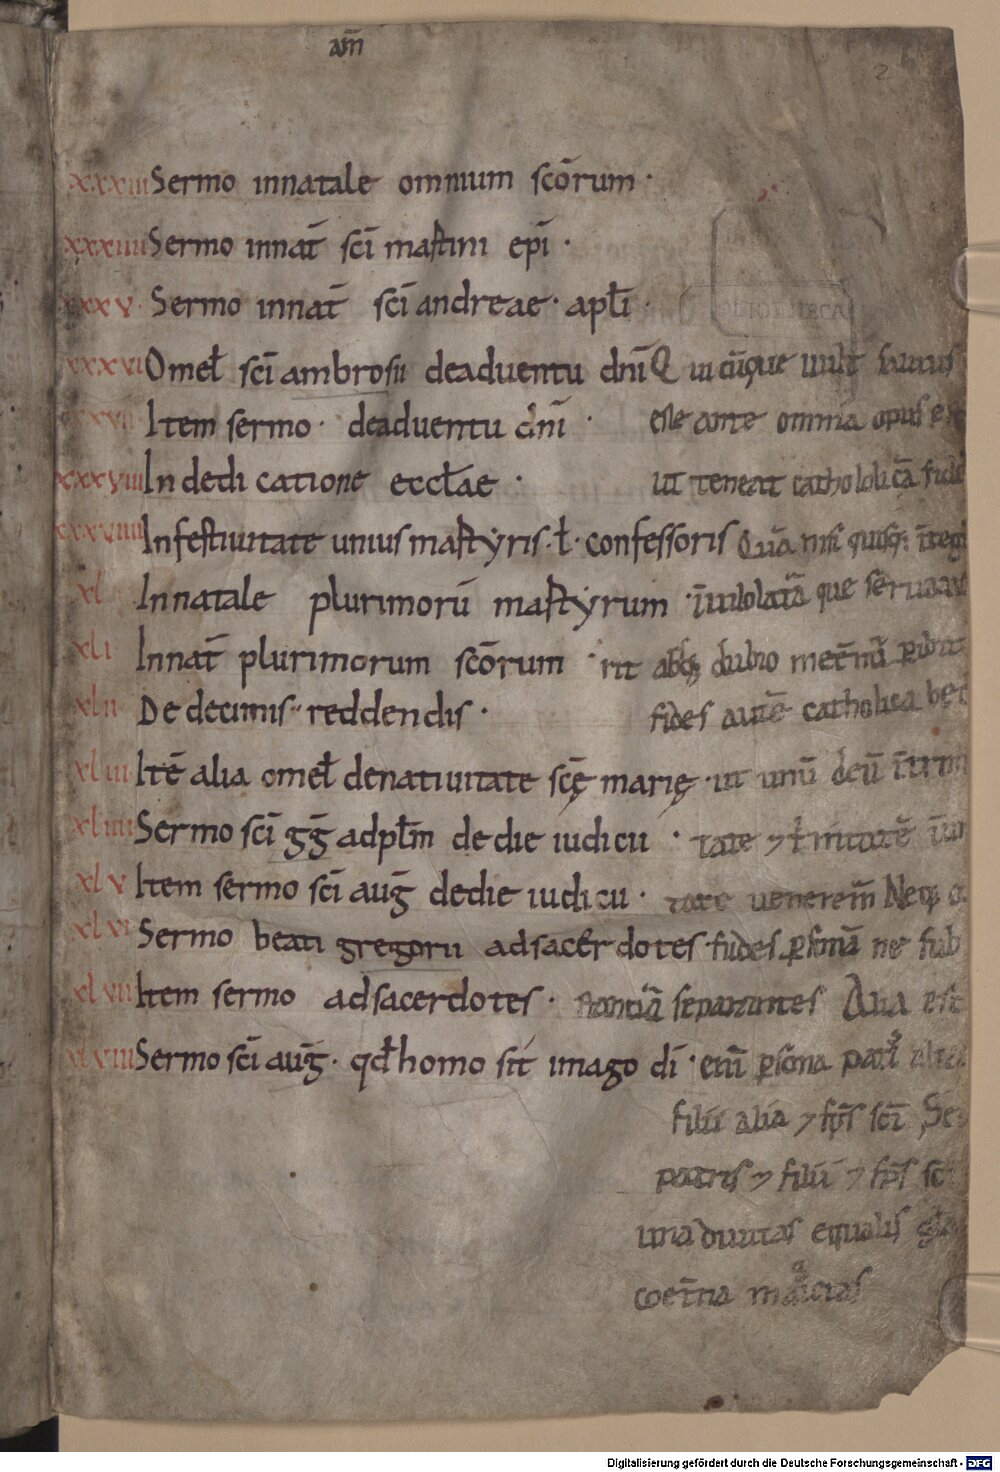 am̄
2
xxxiii Sermo innatale omnium scōrum ·
xxxiiii Sermo innat̄ scī martini epī ·
xxxv · Sermo innat̄ scī andreae · aplī ·
xxxvi Omel̄ scī ambrosii deaduentu dnī Quicūque uult saluus
xxxvii Item sermo · deaduentu dnī · esse ante omnia opus est
xxxviii In dedicatione eccl̄ae · ut teneat catholicā fidē
xxxviiii Infestiuitate unius martyris · l̄ · confessoris Quā nisi quisq; īteg
xl Innatale plurimorū martyrum · īuiolatā que seruaue
xli Innat̄ plurimorum scōrum · rit absq; dubio in et̄nū ꝑibit
xlii De decimis reddendis · fides autē catholica hec
xliii Itē alia omel̄ denatiuitate scę̄ marię · ut unū deū ī trini
xliiii Sermo scī gḡ adpl̄m de die iudicii · tate ⁊ t̄nitatē ī un
xlv Item sermo scī auḡ dedie iudicii · tate uenerem̄ Neq;
xlvi Sermo beati gregorii adsacerdotes · fūdes ꝑsonā ne sub
xlvii Item sermo adsacerdotes · stantiā separantes Alia est
xlviii Sermo scī auḡ · qd̄ homo sit imago dī · enī ꝑsona patris alia
filii alia ⁊ sp̄s scī Se
patris ⁊ filii ⁊ sp̄s sc
una diuitas equalis glo
coet̄na maiestas
Digitalisierung gefördert durch die Deutsche Forschungsgemeinschaft - DFG